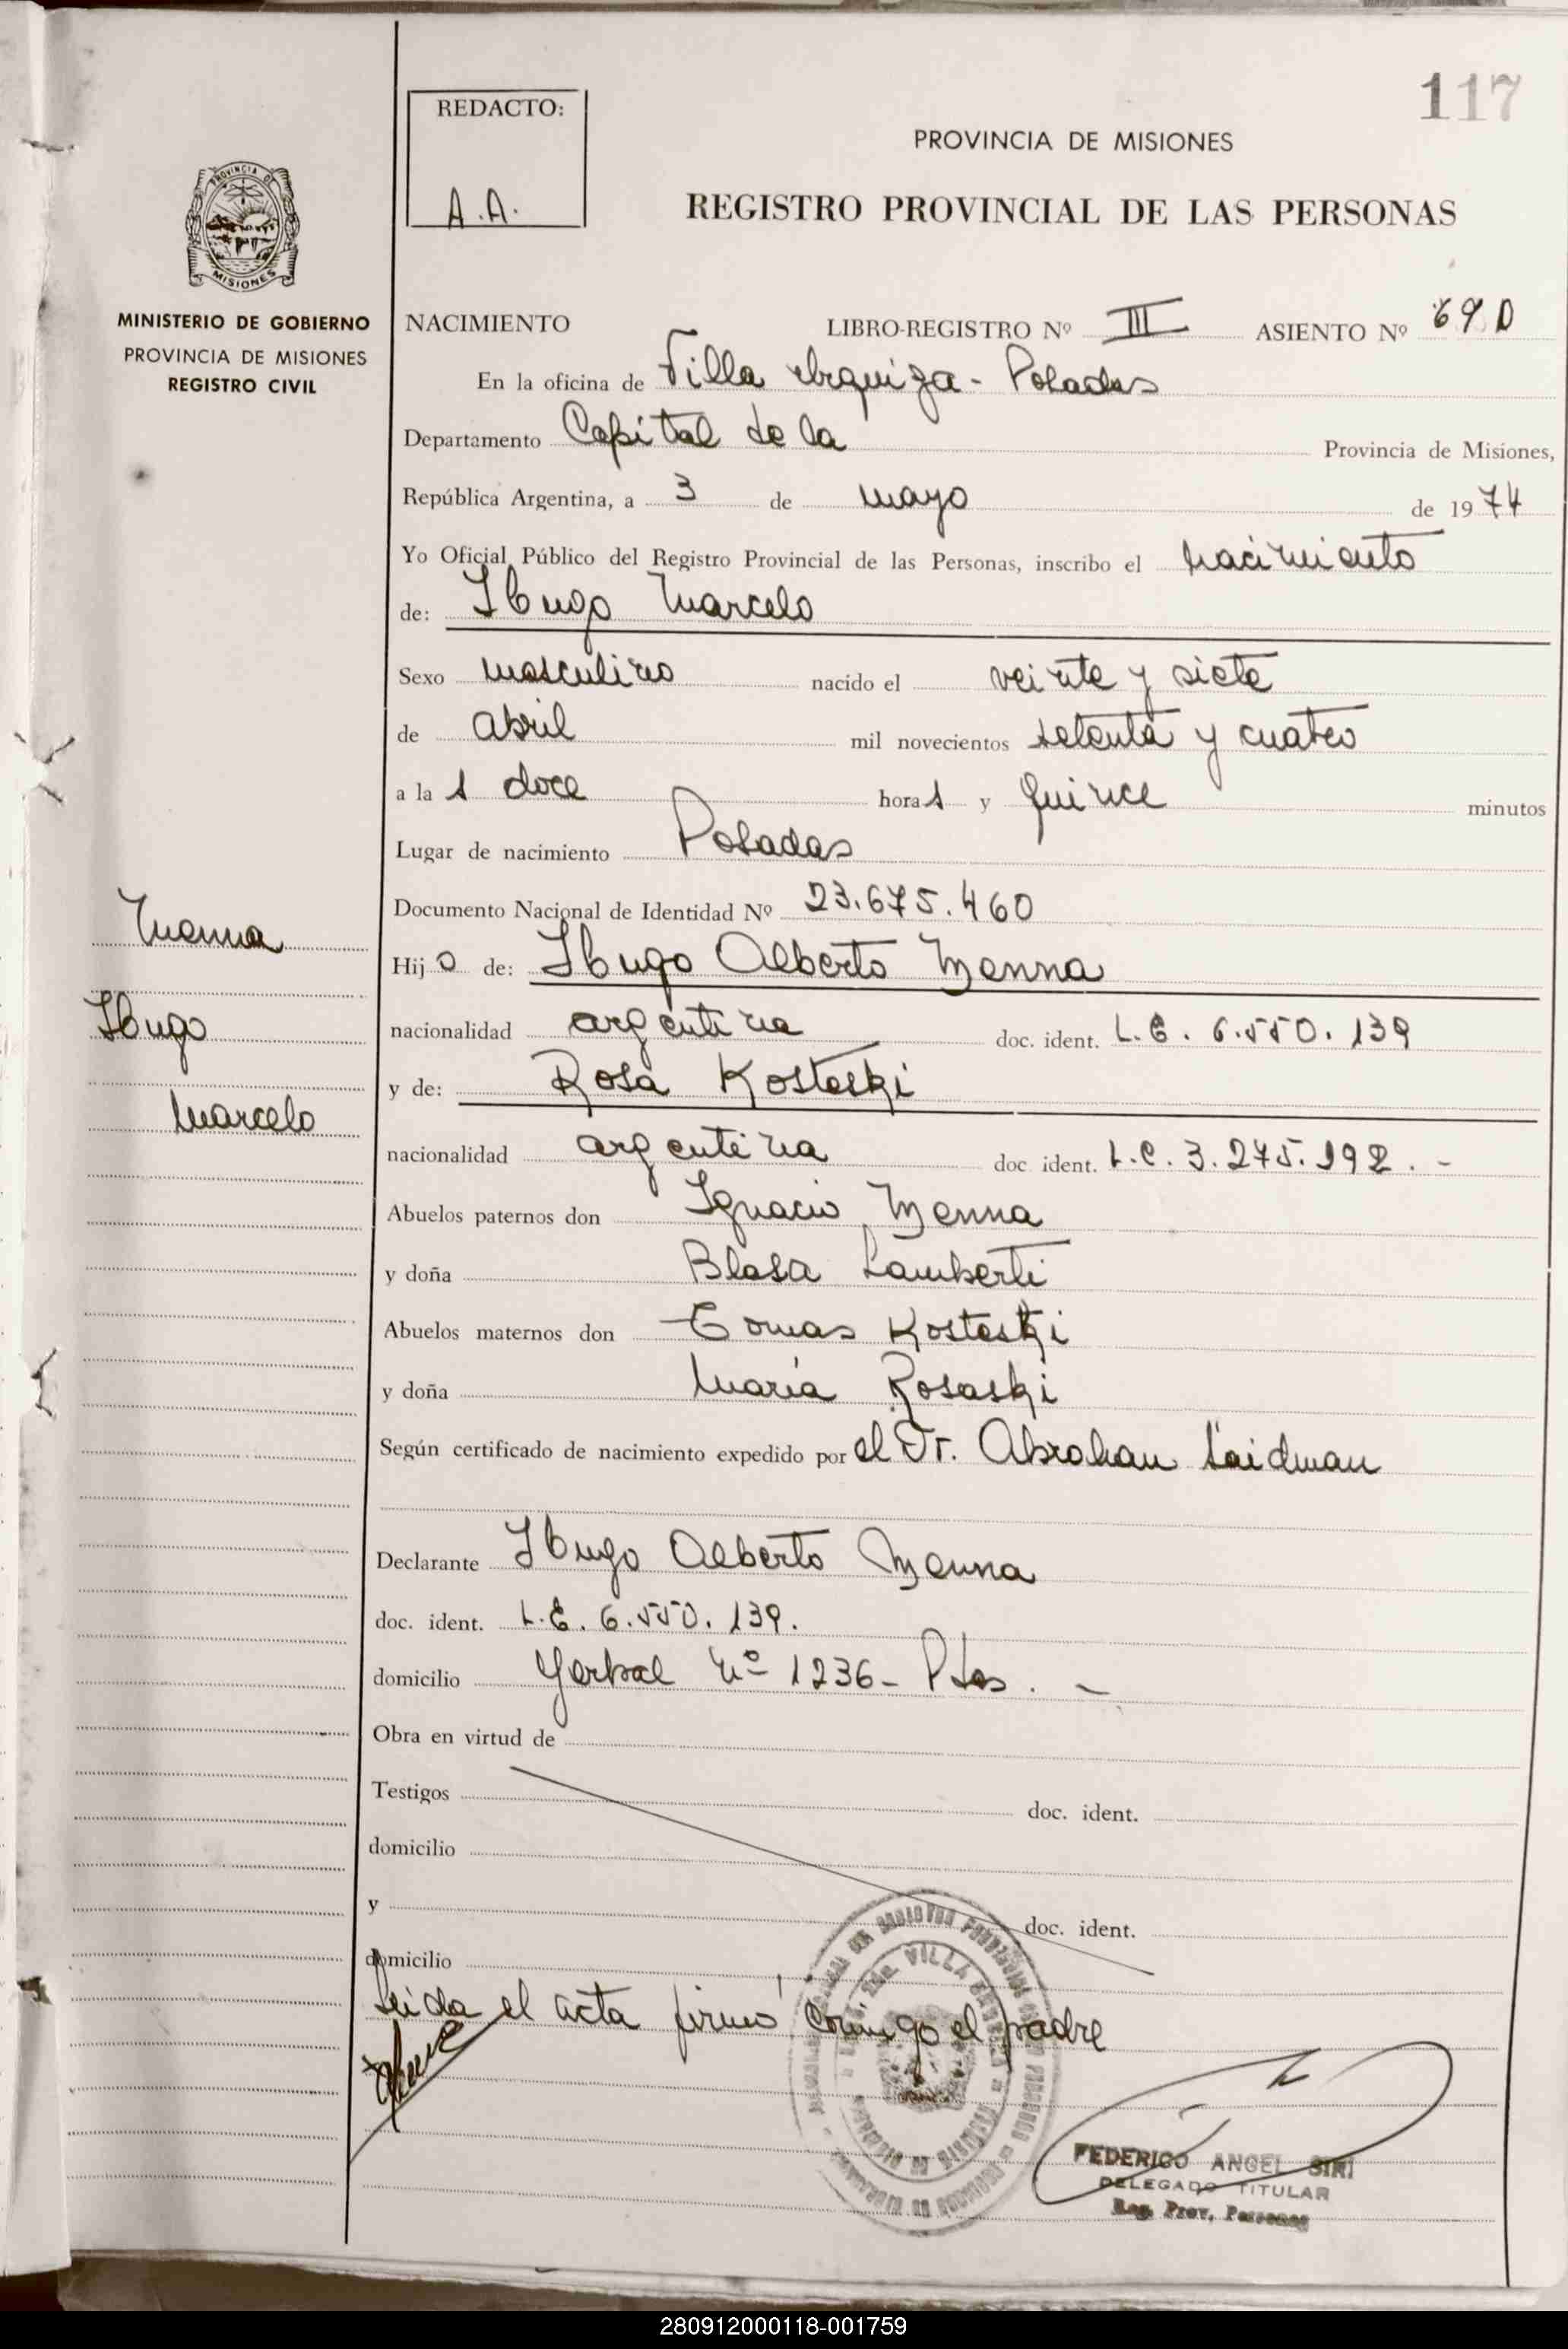 117
REDACTO:
A.A.
PROVINCIA DE MISIONES
REGISTRO PROVINCIAL DE LAS PERSONAS
PROVINCIA DE
MISIONES
MINISTERIO DE GOBIERNO
PROVINCIA DE MISIONES
REGISTRO CIVIL
NACIMIENTO LIBRO-REGISTRO Nº III ASIENTO Nº
En la oficina de Villa Urquiza - Posadas
Departamento Capital de la Provincia de Misiones,
República Argentina, a 3 de mayo de 1974
Yo Oficial Público del Registro Provincial de las Personas, inscribo el nacimiento
de: Hugo Marcelo
Sexo masculino nacido el veinte y siete
de abril mil novecientos setenta y cuatro
a las doce horas y quince minutos
Lugar de nacimiento Posadas
Documento Nacional de Identidad Nº 23.675.460
Menna
Hijo de: Hugo Alberto Menna
Hugo
nacionalidad argentina doc. ident. L.E. 6.550.139
y de: Rosa Kosteski
Marcelo
nacionalidad argentina doc. ident. L.C. 3.275.192.-
Abuelos paternos don Ignacio Menna
y doña Blasa Lamberti
Abuelos maternos don Tomas Kosteski
y doña María Rosaski
Según certificado de nacimiento expedido por el Dr. Abrahan Saidman
Declarante Hugo Alberto Menna
doc. ident. L.E. 6.550.139.
domicilio Yerbal Nº 1236 - Pdas. -
Obra en virtud de
Testigos doc. ident.
domicilio
y doc. ident.
domicilio
Leida el acta firmó conmigo el padre
VILLA URQUIZA
FEDERICO ANGEL SIRI
DELEGADO TITULAR
Reg. Prov. Personas
280912000118-001759